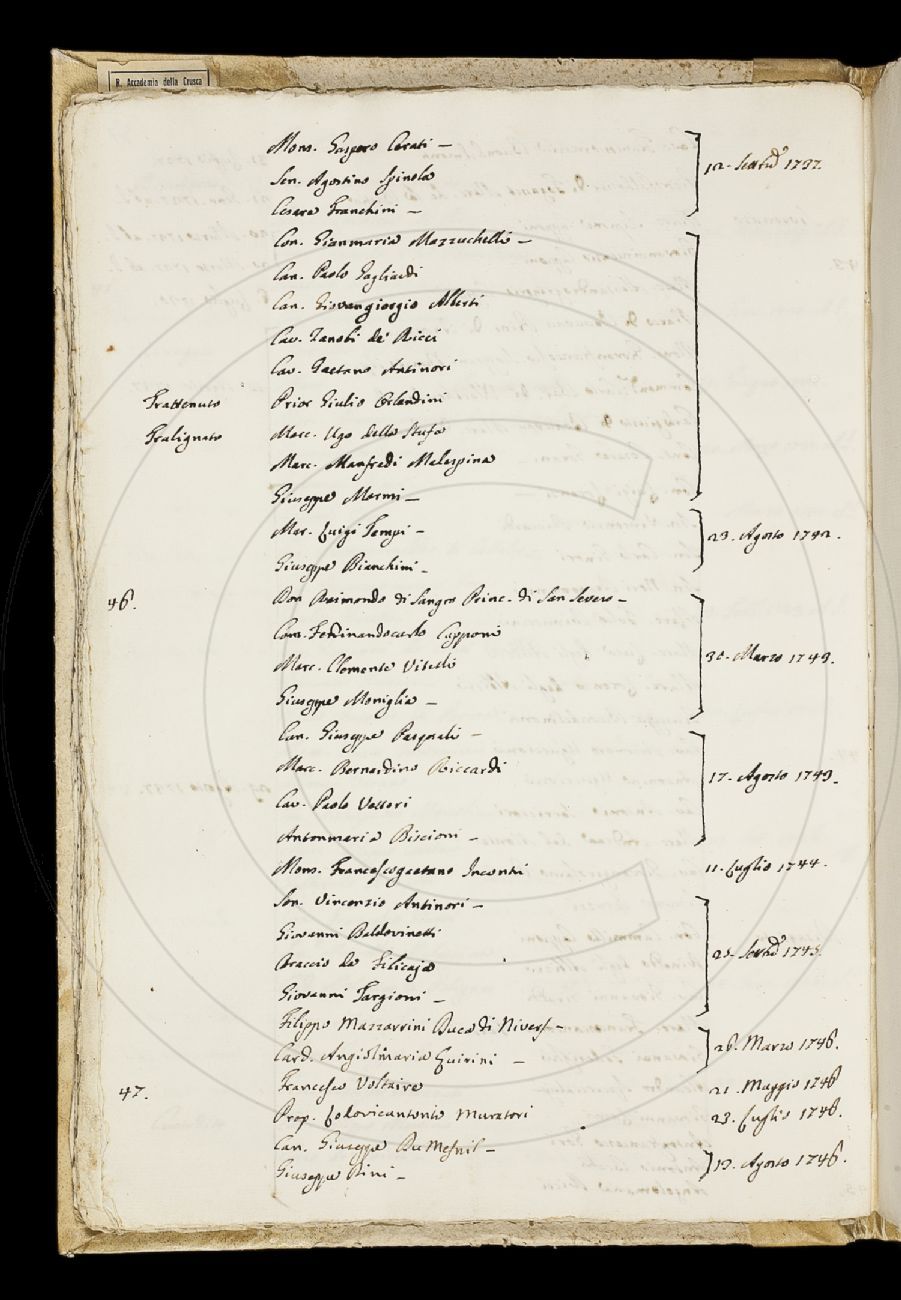 R. Accademia della Crusca
Mons. Gaspero Cerati –
Sen. Agostino Spinola
Cesare Franchini –
12. Settre. 1737.
Con. Gianmaria Mazzuchelli –
Can. Paolo Gagliardi
Can. Giovangiorgio Alberti
Cav. Zanobi de' Ricci
Cav. Gaetano Antinori
Trattenuto Prior Giulio Orlandini
Tralignato Marc. Ugo della Stufa
Marc. Manfredi Malaspina
Giuseppe Marmi –
Mar. Luigi Tempi –
Giuseppe Bianchini –
23. Agosto 1742.
46. Don Raimondo di Sangro Princ. di San Severo –
Con. Ferdinandocarlo Capponi
Marc. Clemente Vitelli
Giuseppe Moniglia –
30. Marzo 1743.
Can. Giuseppe Pasquali –
Marc. Bernardino Riccardi
Cav. Paolo Vettori
Antonmaria Biscioni –
17. Agosto 1743.
Mons. Francescogaetano Incontri 11. Luglio 1744.
Sen. Vincenzio Antinori –
Giovanni Baldovinetti
Braccio da Filicaja
Giovanni Targioni –
Settre. 1745.
Filippo Mazzarrini Duca di Nivers –
Card. Angiolmaria Quirini –
26. Marzo 1746.
47. Francesco Voltaire 21. Maggio 1746
Prop. Lodovicantonio Muratori 23. Luglio 1746.
Can. Giuseppe Du Mesnil –
Giuseppe Bini –
12. Agosto 1746.